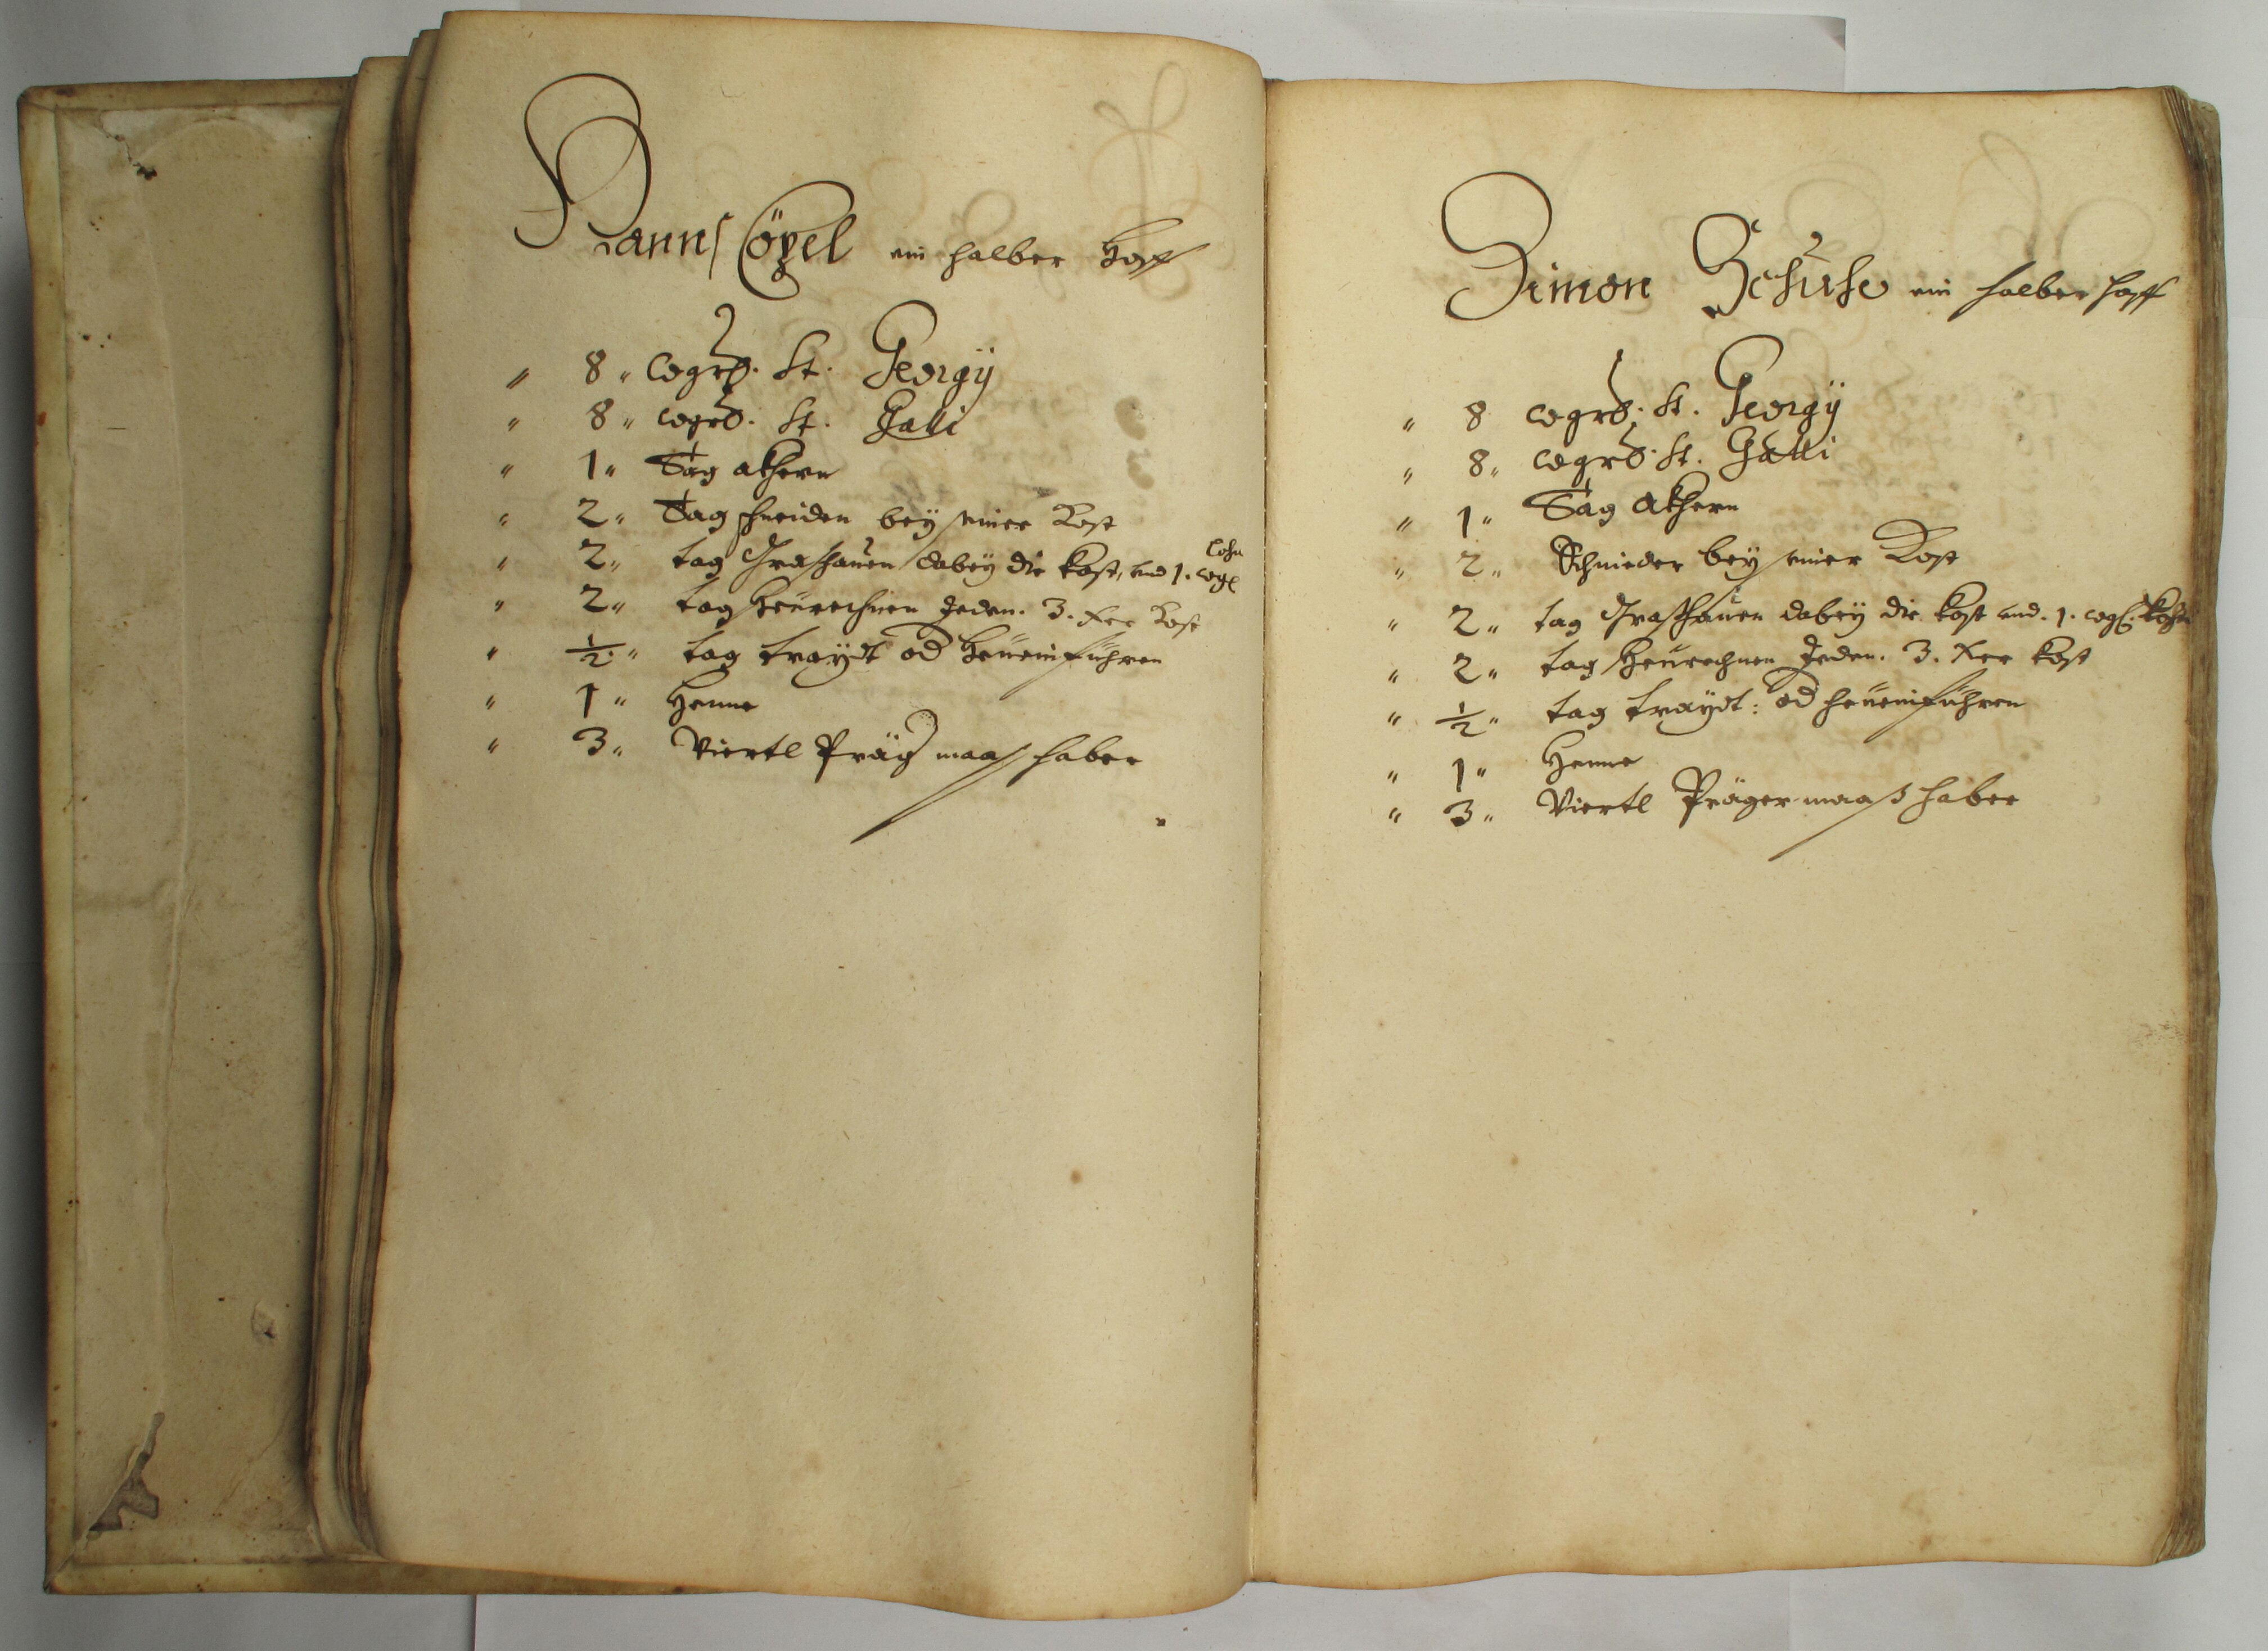 Hannß Cözel ein halber Hoff
" 8 " wgrß. St. Georgÿ
" 8 " wgrß. St. Galli
" 1 " Tag akhern
" 2 " Tag schneiden beÿ einer Kost
" 2 " tag Graßhauen dabeÿ die kost, und 1. wgl Lohn
" 2 " tag Heurechnen Jeden. 3. Xer Kost
" ½ " tag traÿdt od Heueinführen
" 1 " Henne
" 3 " Viertl Präg maaß haber
Simon ein halber hoff
" 8 wgrß. St. Georgÿ
" 8 " wgrß. St. Galli
" 1 " Tag akhern
" 2 " Schnieder beÿ einer Kost
" 2 " tag Graßhauen dabeÿ die kost und. 1. wgl. Lohn
" 2 " tag Heurechnen Jeden. 3. Xer kost
" ½ " tag traÿdt: od heueinführen
" 1 " Henne
" 3 " Viertl Präger maaß haber